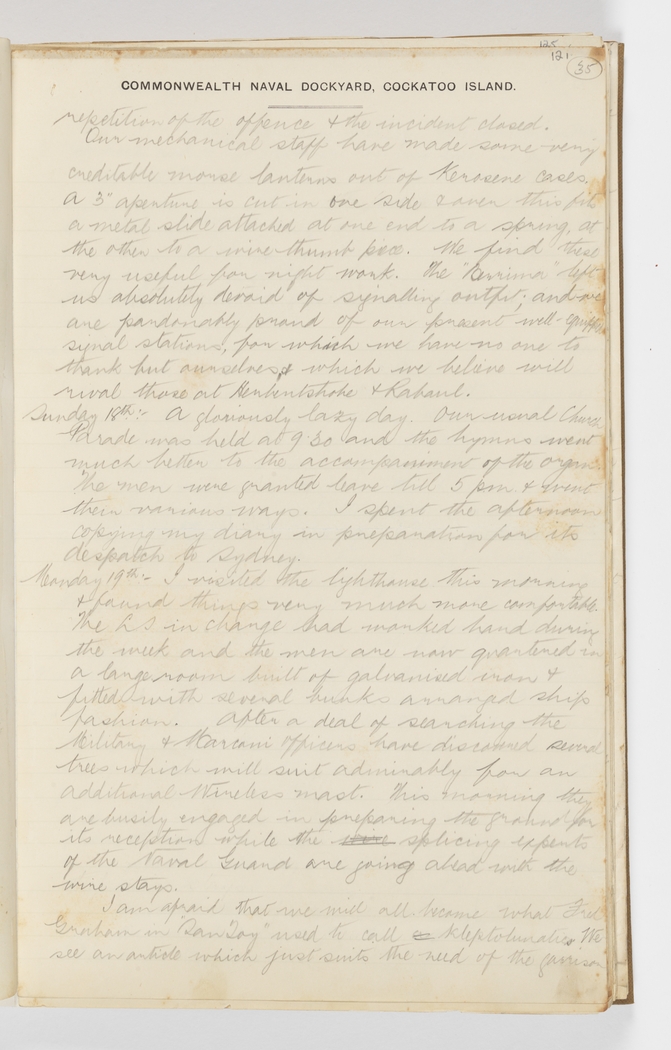 125
121
35
COMMONWEALTH NAVAL DOCKYARD, COCKATOO ISLAND.
repetition of the offence & the incident closed.
Our mechanical staff have made some very
creditable morse lanterns out of Kerosene cases.
A 3" aperture is cut in one side & over this fit
a metal slide attached at one end to a spring, at
the other to a wire thumb piece. We find these
very useful for night work. The "Berrima" left
us absolutely devoid of signalling outfit; and we
are pardonably proud of our present well-equipped
signal stations, for which we have no one to
thank but ourselves, & which we believe will
rival those at Herbertshohe & Rabaul.
Sunday 18th:- A gloriously lazy day. Our usual Church
Parade was held at 9.30 and the hymns went
much better to the accompaniment of the organ.
The men were granted leave till 5 pm & went
their various ways. I spent the afternoon
copying my diary in preparation for its
despatch to Sydney.
Monday 19th:- I visited the lighthouse this morning
& found things very much more comfortable.
The LS in charge had worked hard during
the week and the men are now quartered in
a large room built of galvanised iron &
fitted with several bunks arranged ship
fashion. After a deal of searching the
Military & Marconi Officers have discovered several
trees which will suit admirably for an
additional Wireless mast. This morning they
are busily engaged in preparing the ground for
its reception while the wire splicing experts
of the Naval Guard are going ahead with the
wire stays.
I am afraid that we will all become what Fred
Graham in "San Toy" used to call kleptolunatics. We
see an article which just suits the need of the garrison